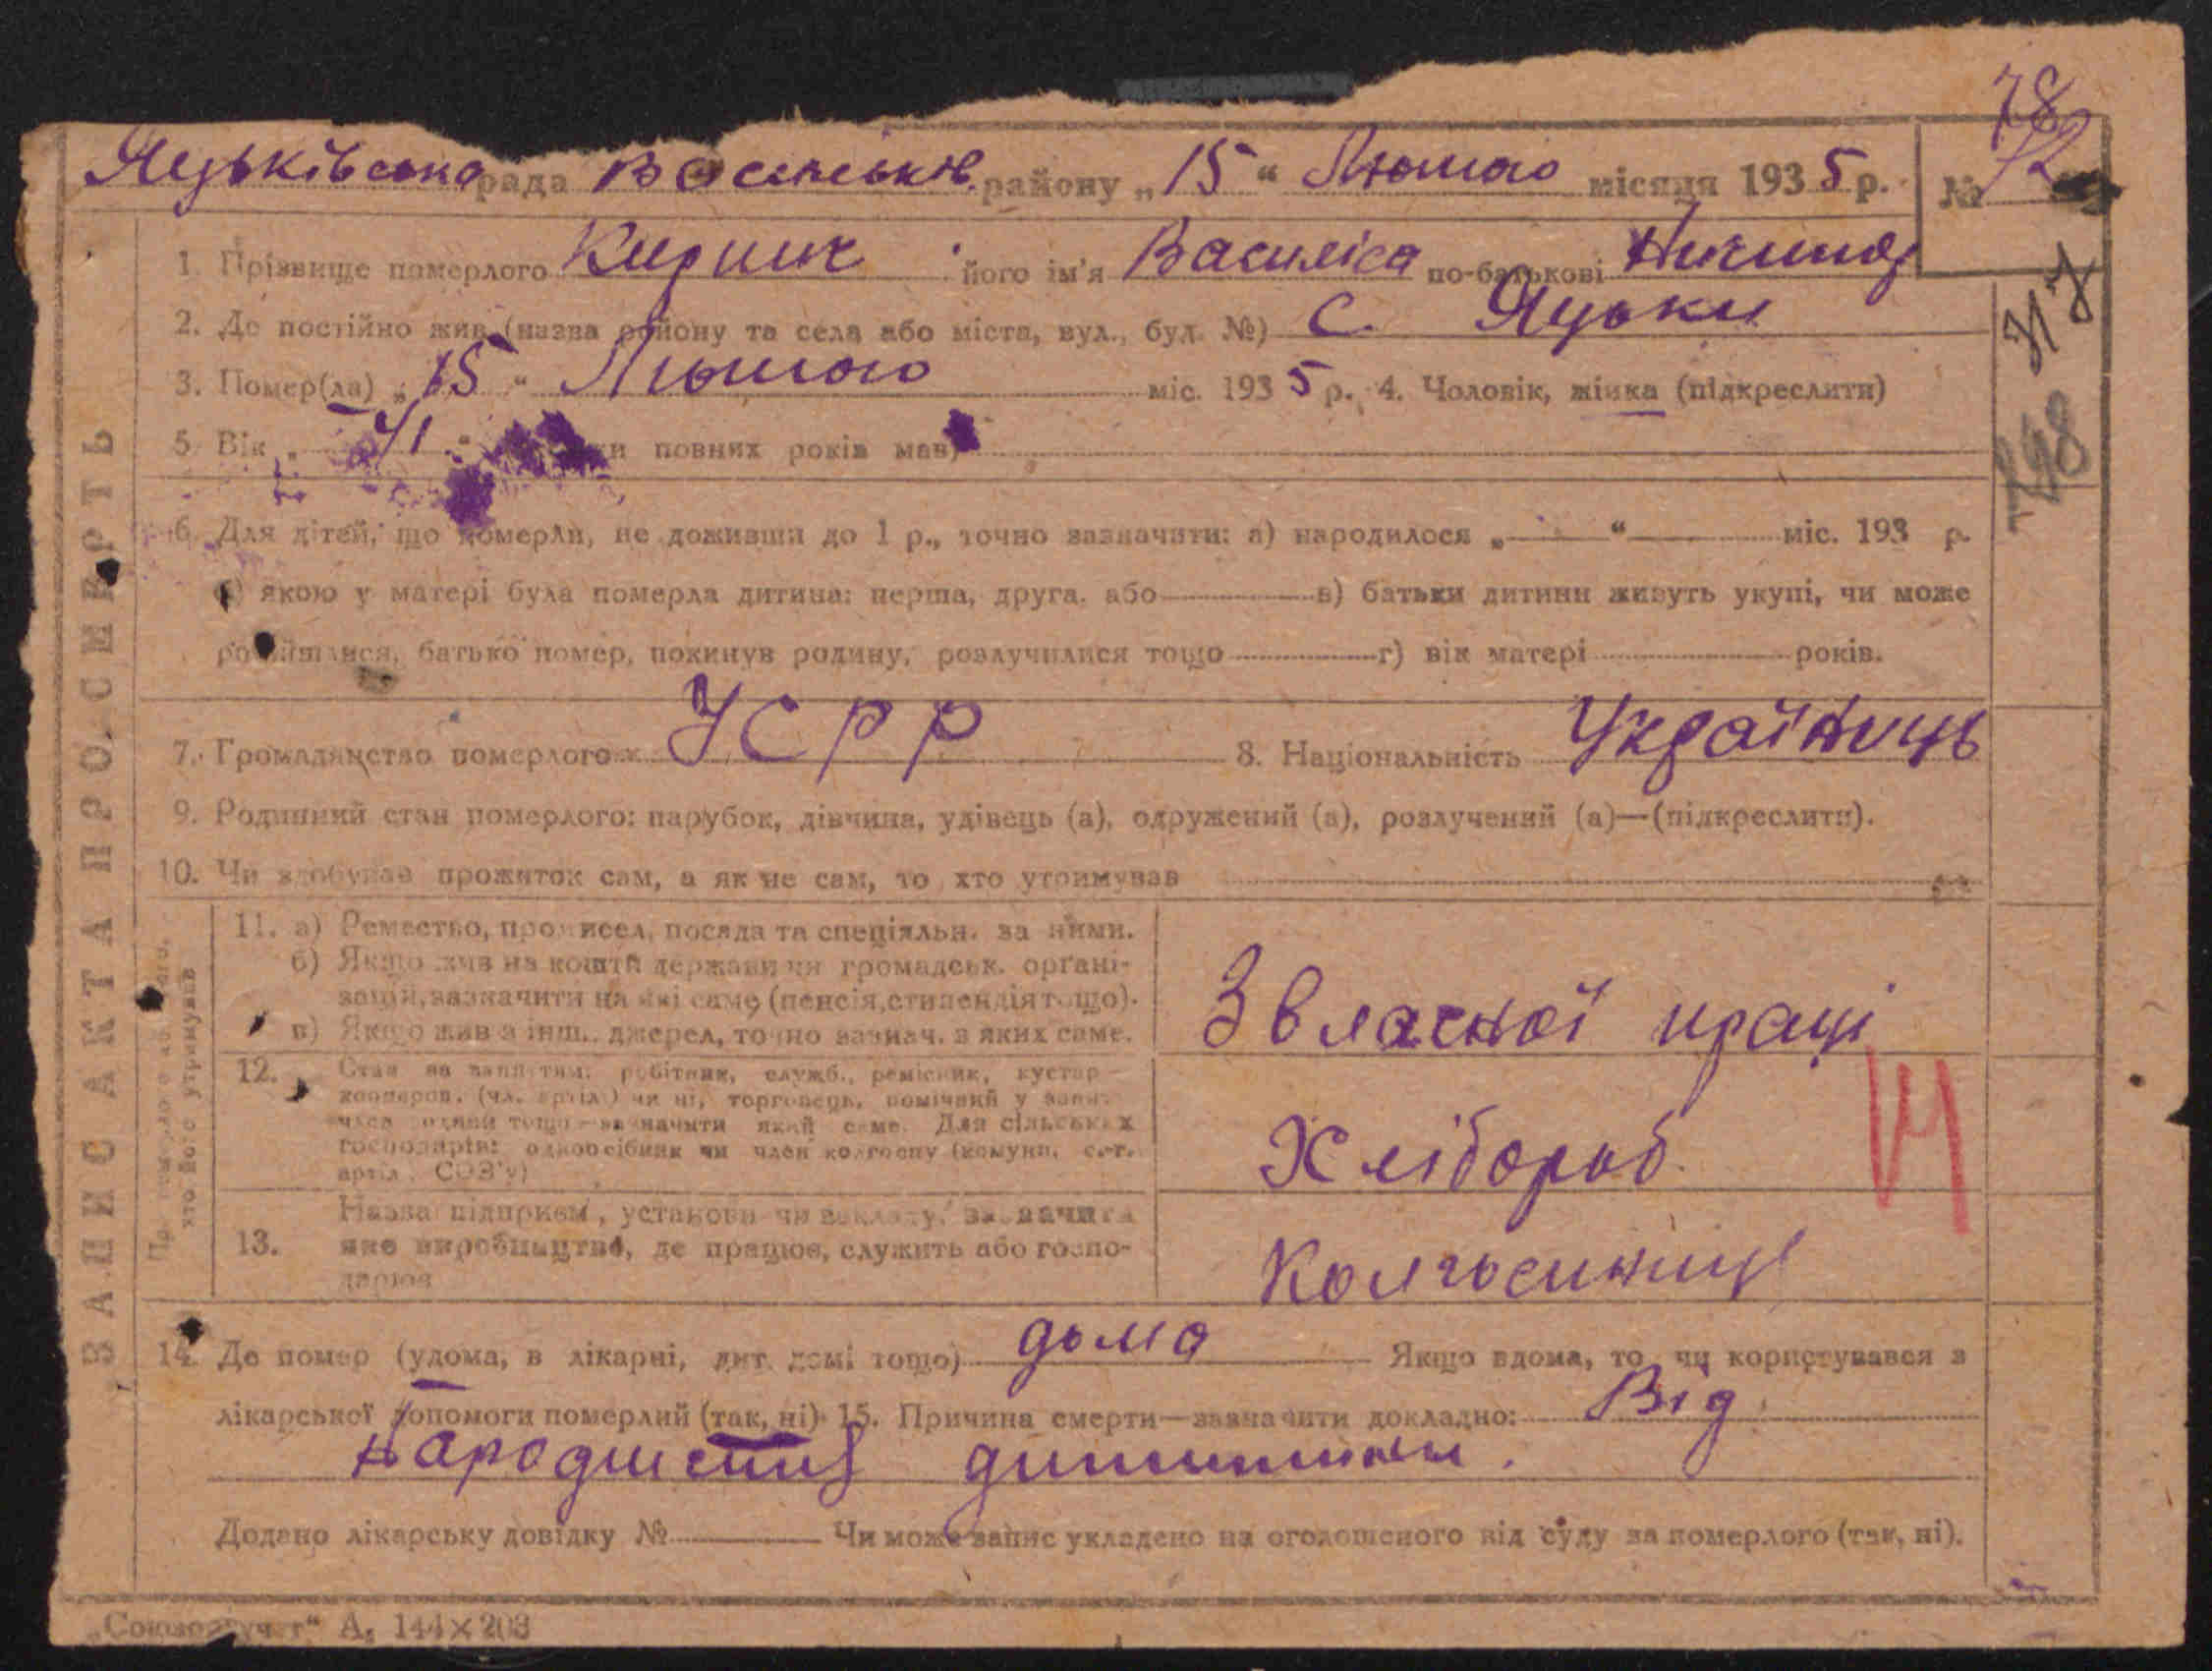 78
Яцьківська рада Васильків. району „15“ Лютого місяця 1935 р. № 72
1. Прізвище померлого Кирник його ім'я Василіса по-батькові
2. Де постійно жив (назва району та села або міста, вул., буд. №) С. Яцьки
3. Помер(ла) „15“ Лютого міс. 1935 р. 4. Чоловік, жінка (підкреслити)
5. Вік „41“ повних років мав)
6. Для дітей, що померли, не доживши до 1 р., точно зазначити: а) народилося „—“ — міс. 193 р.
б) якою у матері була померла дитина: перша, друга. або в) батьки дитини живуть укупі, чи може
розійшлися, батько помер, покинув родину, розлучилися тощо г) вік матері років.
7. Громадянство померлого УСРР 8. Національність Українець
9. Родинний стан померлого: парубок, дівчина, удівець (а), одружений (а), розлучений (а)—(підкреслити).
10. Чи здобував прожиток сам, а як не сам, то хто утримував
11. а) Ремество, промисел, посада та спеціяльн. за ними.
б) Якщо жив на кошти держави чи громадськ. органі-
зацій, зазначити на які саме (пенсія, стипендія тощо).
в) Якщо жив з інш. джерел, точно зазнач. з яких саме.
З власної праці
12. Стан за заняттям: робітник, служб., ремісник, кустар
кооперов. (чл. артіл.) чи ні, торговець, помічний у
тощо—зазначити який саме. Для сільських
господарів: одноосібник чи член колгоспу (комуни, с.-г.
артіл. СОЗ'у)
Хлібороб
13. Назва підприєм., установи чи закладу, зазначити
яке виробництво, де працює, служить або госпо-
дарює
Колгоспниця
14. Де помер (удома, в лікарні, дит. домі тощо) дома Якщо вдома, то чи користувався з
лікарської допомоги померлий (так, ні) 15. Причина смерти—зазначити докладно: Від
народження дитини.
Додано лікарську довідку № Чи може запис укладено на оголошеного від суду за померлого (так, ні).
„Союзоргучет“ А5 144×203
ЗАПИС АКТА ПРО СМЕРТЬ
хто його утримував
317
748